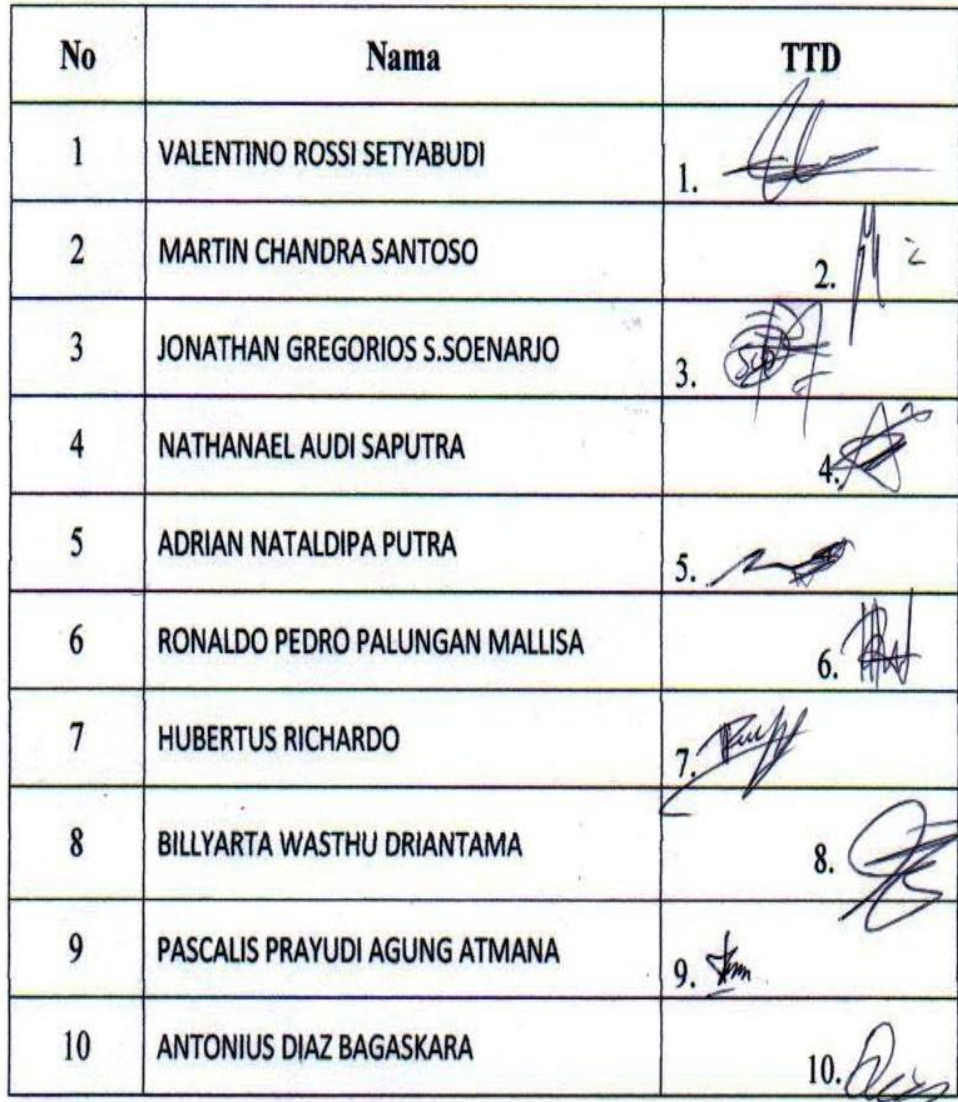 No Nama TTD
1 VALENTINO ROSSI SETYABUDI 1.
2 MARTIN CHANDRA SANTOSO 2.
3 JONATHAN GREGORIOS S.SOENARJO 3.
4 NATHANAEL AUDI SAPUTRA 4.
5 ADRIAN NATALDIPA PUTRA 5.
6 RONALDO PEDRO PALUNGAN MALLISA 6.
7 HUBERTUS RICHARDO 7.
8 BILLYARTA WASTHU DRIANTAMA 8.
9 PASCALIS PRAYUDI AGUNG ATMANA 9.
10 ANTONIUS DIAZ BAGASKARA 10.